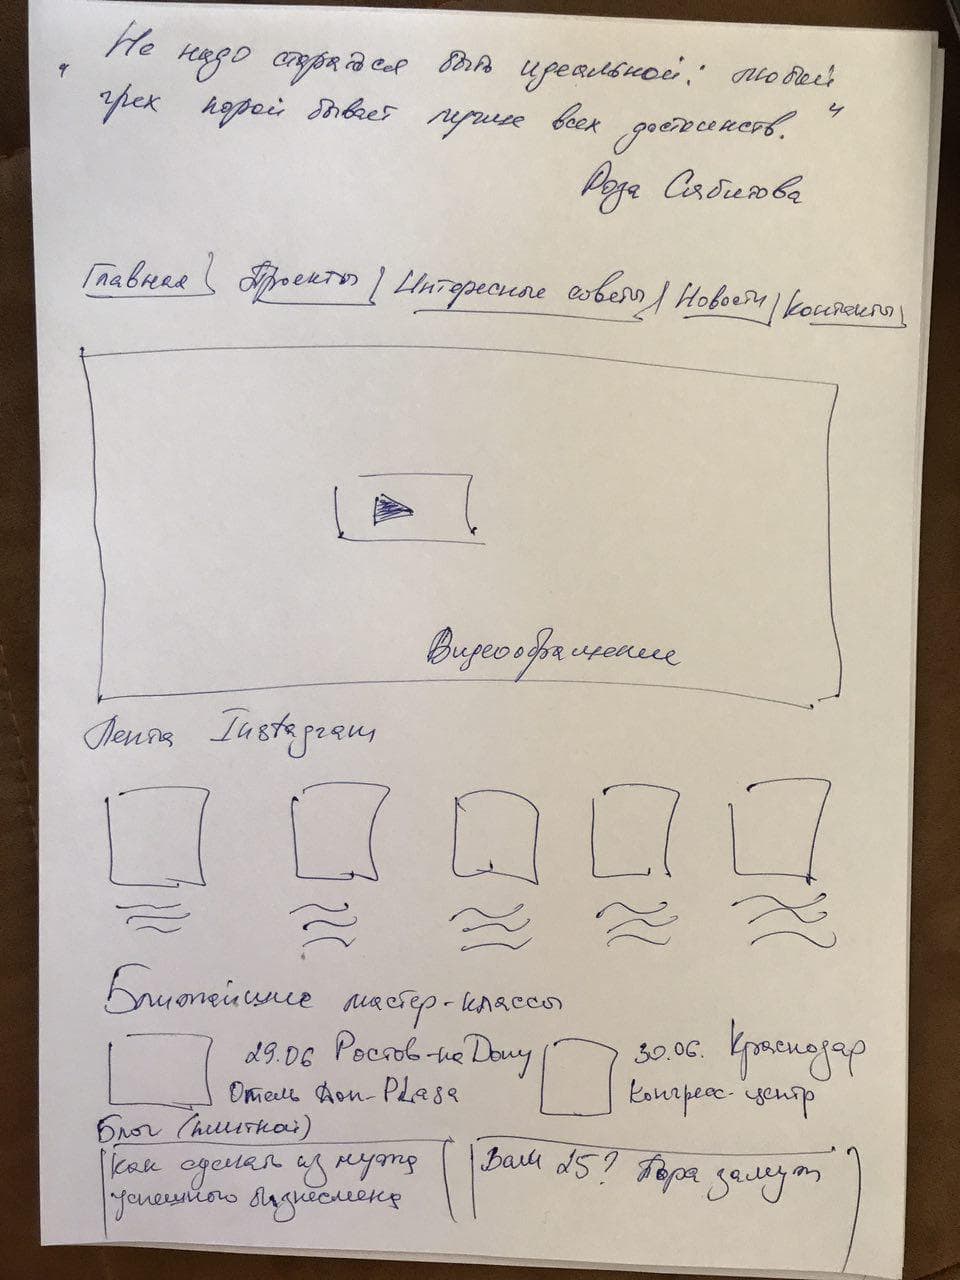 "Не надо стараться быть идеальной: любой
грех порой бывает лучше всех достоинств."
Роза Сябитова
Главная Проекты Интересные советы Новости Контакты
Видеообращение
Лента Instagram
Ближайшие мастер-классы
29.06 Ростов-на-Дону 30.06. Краснодар
Отель Дон-Plaza Конгресс-центр
Блог (плиткой)
Как сделать из мужа Вам 25? Пора замуж
успешного бизнесмена